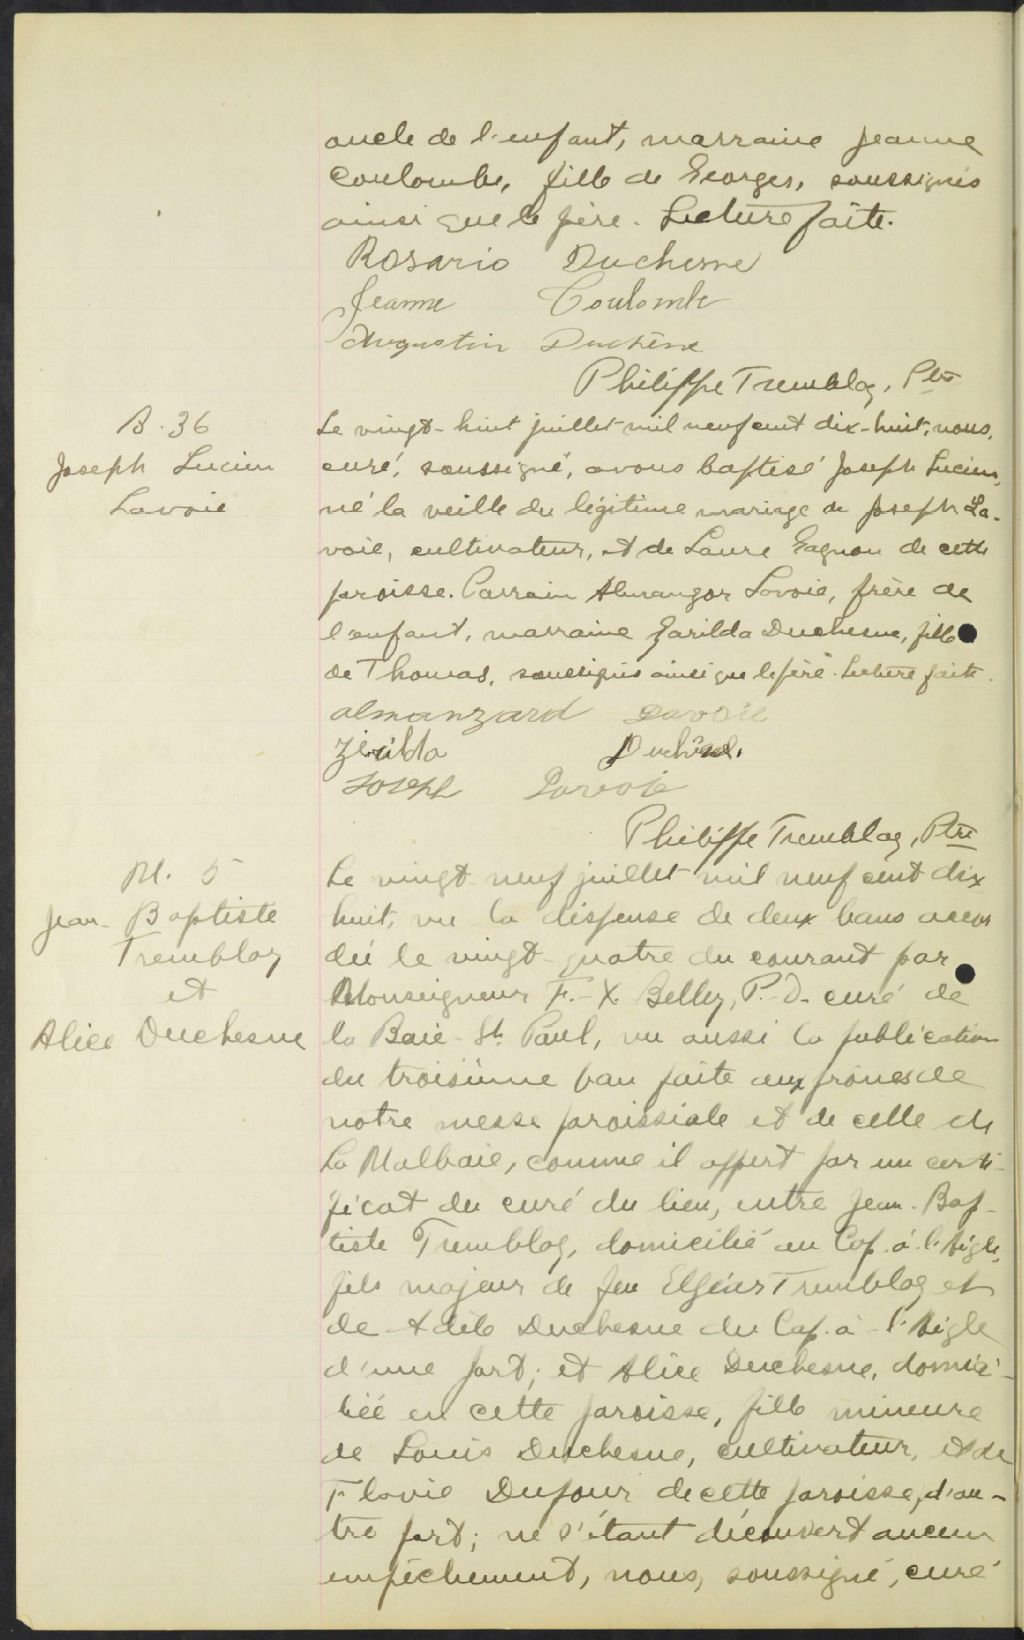 oncle de l'enfant, marraine Jeanne
Coulombe, fille de Georges, soussignés
ainsi que le père. Lecture faite.
Rosario Duchesne
Jeanne Coulombe
Augustin Duchêne
Philippe Tremblay, Ptre
B. 36
Joseph Lucien
Lavoie
Le vingt-huit juillet mil neuf cent dix-huit, nous,
curé, soussigné, avons baptisé Joseph Lucien,
né la veille du légitime mariage de Joseph La-
voie, cultivateur, et de Laure Gagnon de cette
paroisse. Parrain Almanzor Lavoie, frère de
l'enfant, marraine Zarilda Duchesne, fille
de Thomas, soussignés ainsi que le père. Lecture faite.
almanzard Lavoie
Zérilda Duchêne.
Joseph Lavoie
Philippe Tremblay, Ptre
M. 5
Jean-Baptiste
Tremblay
et
Alice Duchesne
Le vingt-neuf juillet mil neuf cent dix
huit, vu la dispense de deux bans accor
dée le vingt-quatre du courant par
Monseigneur F.-X. Belley, P.-D. curé de
la Baie-St Paul, vu aussi la publication
du troisième ban faite aux prônes de
notre messe paroissiale et de celle de
La Malbaie, comme il appert par un certi-
ficat du curé du lieu, entre Jean-Bap-
tiste Tremblay, domicilié au Cap-à-l'Aigle,
fils majeur de feu Elzéar Tremblay et
de Adèle Duchesne du Cap-à-l'Aigle
d'une part; et Alice Duchesne, domici-
liée en cette paroisse, fille mineure
de Louis Duchesne, cultivateur, et de
Flavie Dufour de cette paroisse, d'au-
tre part; ne s'étant découvert aucun
empêchement, nous, soussigné, curé